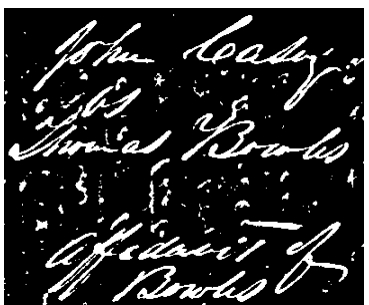 John Casey
vs
Thomas E Bowles
Affidavit of
Bowles